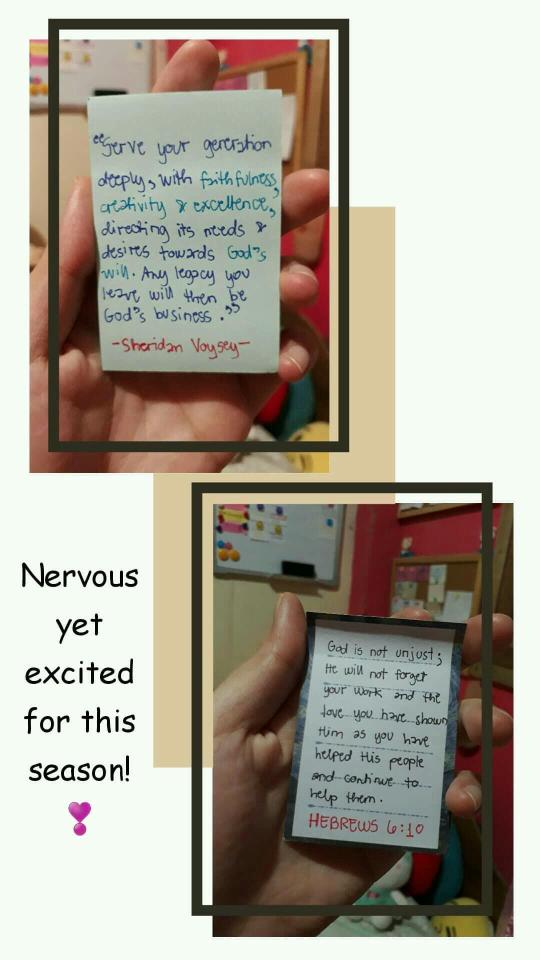 “Serve your generation
deeply, with faithfulness,
creativity & excellence,
directing its needs &
desires towards God's
will. Any legacy you
leave will then be
God's business.”
-Sheridan Voysey-
Nervous
yet
excited
for this
season!
God is not unjust;
He will not forget
your work and the
love you have shown
Him as you have
helped His people
and continue to
help them.
HEBREWS 6:10